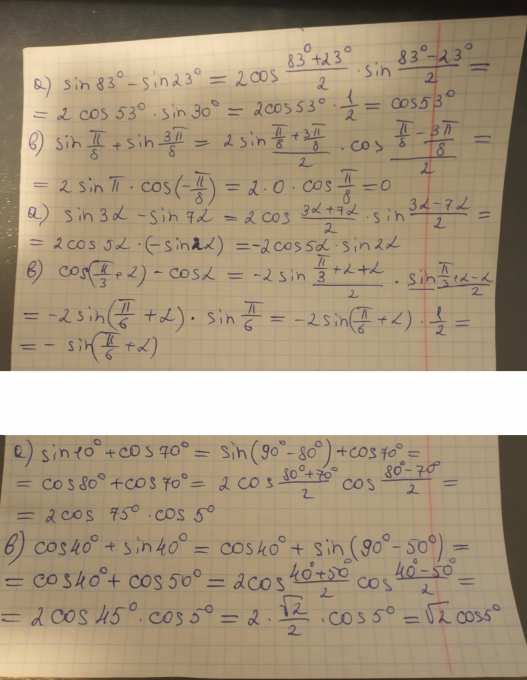 а) sin 83° − sin 23° = 2 cos (83° + 23°)/2 · sin (83° − 23°)/2 =
= 2 cos 53° · sin 30° = 2 cos 53° · 1/2 = cos 53°
в) sin π/8 + sin 3π/8 = 2 sin (π/8 + 3π/8)/2 · cos (π/8 − 3π/8)/2 =
= 2 sin π · cos(−π/8) = 2 · 0 · cos π/8 = 0
а) sin 3α − sin 7α = 2 cos (3α + 7α)/2 · sin (3α − 7α)/2 =
= 2 cos 5α · (−sin 2α) = −2 cos 5α · sin 2α
в) cos(π/3 + α) − cos α = −2 sin (π/3 + α + α)/2 · sin (π/3 + α − α)/2
= −2 sin(π/6 + α) · sin π/6 = −2 sin(π/6 + α) · 1/2 =
= − sin(π/6 + α)
а) sin 10° + cos 70° = sin(90° − 80°) + cos 70° =
= cos 80° + cos 70° = 2 cos (80° + 70°)/2 cos (80° − 70°)/2 =
= 2 cos 75° · cos 5°
в) cos 40° + sin 40° = cos 40° + sin(90° − 50°) =
= cos 40° + cos 50° = 2 cos (40° + 50°)/2 cos (40° − 50°)/2 =
= 2 cos 45° · cos 5° = 2 · √2/2 · cos 5° = √2 cos 5°